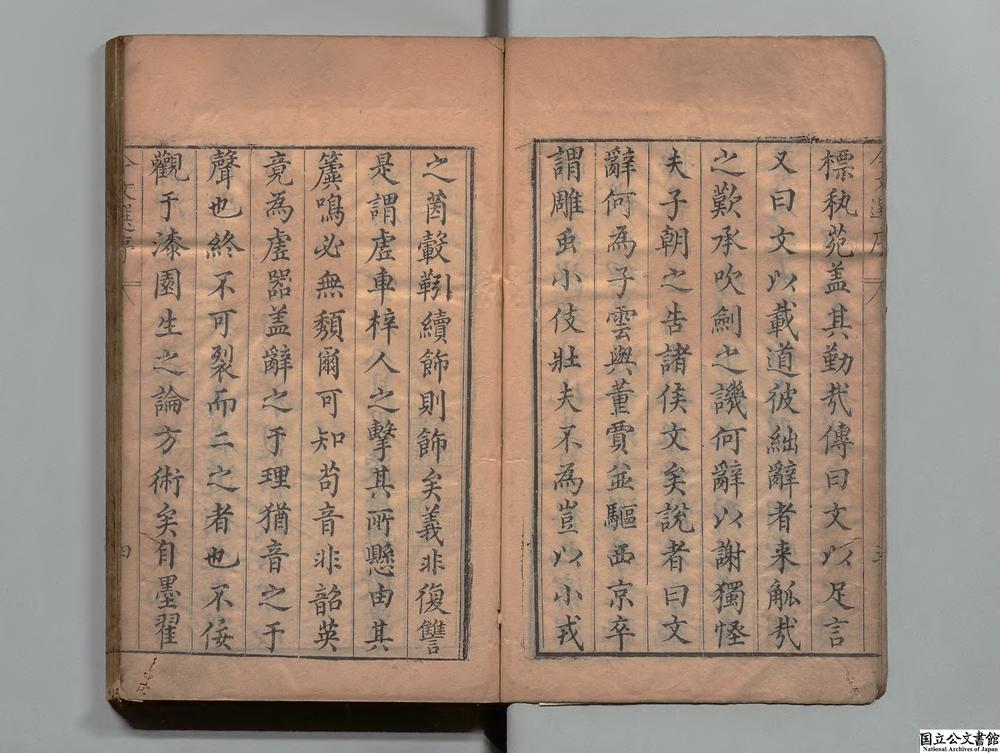 標執苑盖其勤㢤傳曰文以足言
又曰文以載道彼絀辭者来觚㢤
之歎承吹劍之譏何辭以謝獨怪
夫子朝之告諸侯文矣說者曰文
辭何為子雲與董賈並驅西京卒
謂雕虫小伎壯夫不為豈以小戎
之茵轂靷續飾則飾矣義非復讐
是謂虛車梓人之擊其所懸由其
簴鳴必無顙爾可知苟音非韶英
竟為虛器盖辭之于理猶音之于
聲也終不可裂而二之者也不佞
觀于漆園生之論方術矣自墨翟
四
国立公文書館
National Archives of Japan